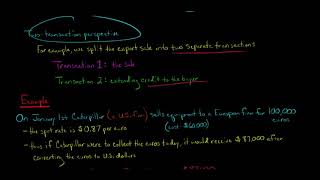 Two-transaction perspective
For example, we split the export sale into two separate transactions
Transaction 1: the sale
Transaction 2: extending credit to the buyer
Example
On January 1st Caterpillar (a U.S. firm) sells equipment to a European firm for 100,000 euros
(cost $60,000)
- the spot rate is $0.87 per euro
- thus if Caterpillar were to collect the euros today, it would receive $87,000 after
converting the euros to U.S. dollars